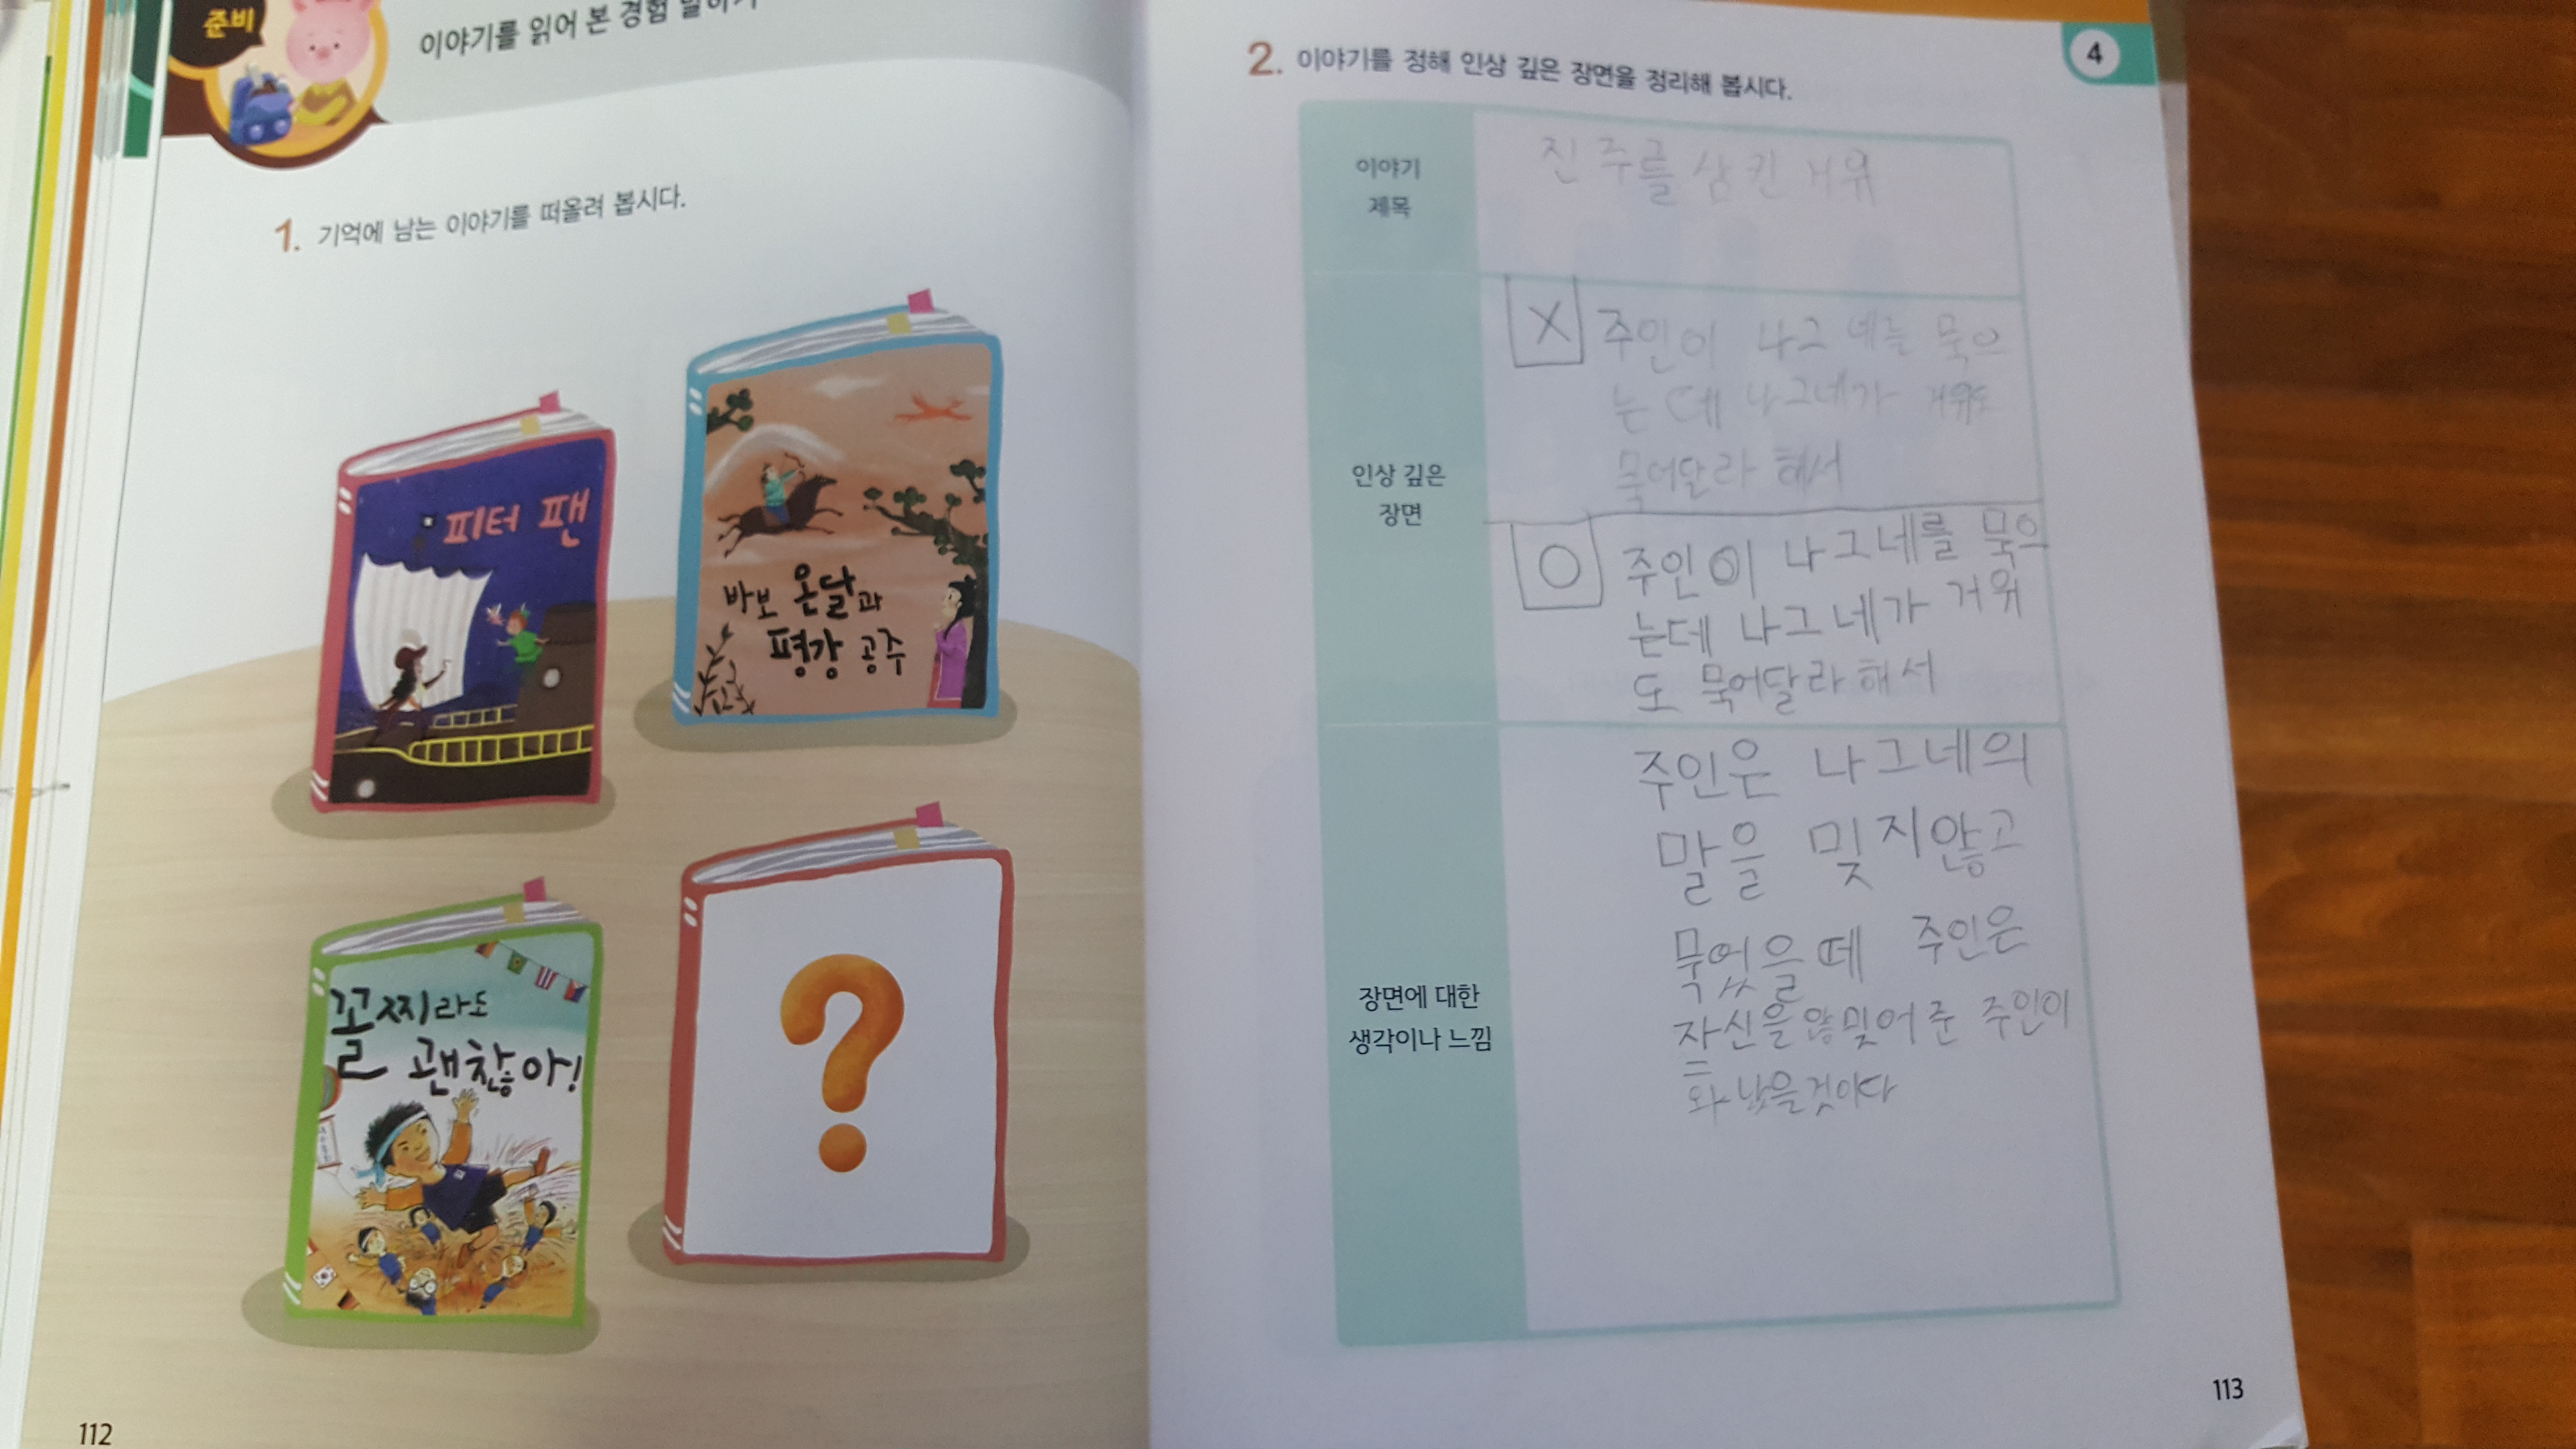 준비
이야기를 읽어 본 경험 말하기
1. 기억에 남는 이야기를 떠올려 봅시다.
피터 팬
바보 온달과
평강 공주
꼴찌라도
괜찮아!
?
112
4
2. 이야기를 정해 인상 깊은 장면을 정리해 봅시다.
이야기
제목
진주를 삼킨 거위
인상 깊은
장면
X 주인이 나그네를 묶으
는데 나그네가 거위도
묶어달라 해서
O 주인이 나그네를 묶으
는데 나그네가 거위
도 묶어달라 해서
장면에 대한
생각이나 느낌
주인은 나그네의
말을 밎지않고
묶었을떼 주인은
자신을 않밎어준 주인이
화났을것이다
113